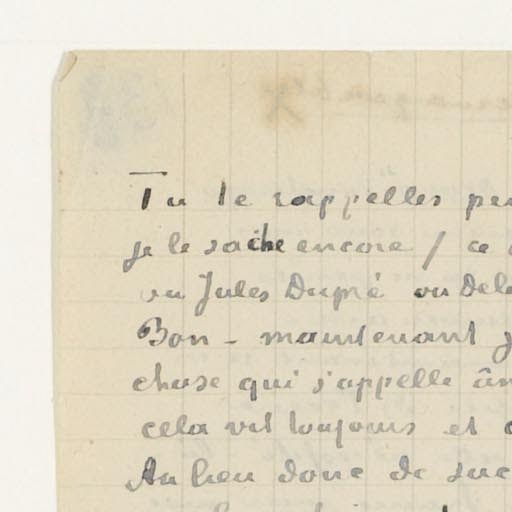 Tu te rappelles
je le sache encore / ce
vu Jules Dupré ou
Bon – maintenant
chose qui s'appelle
cela vit toujours et
Au lieu donc de